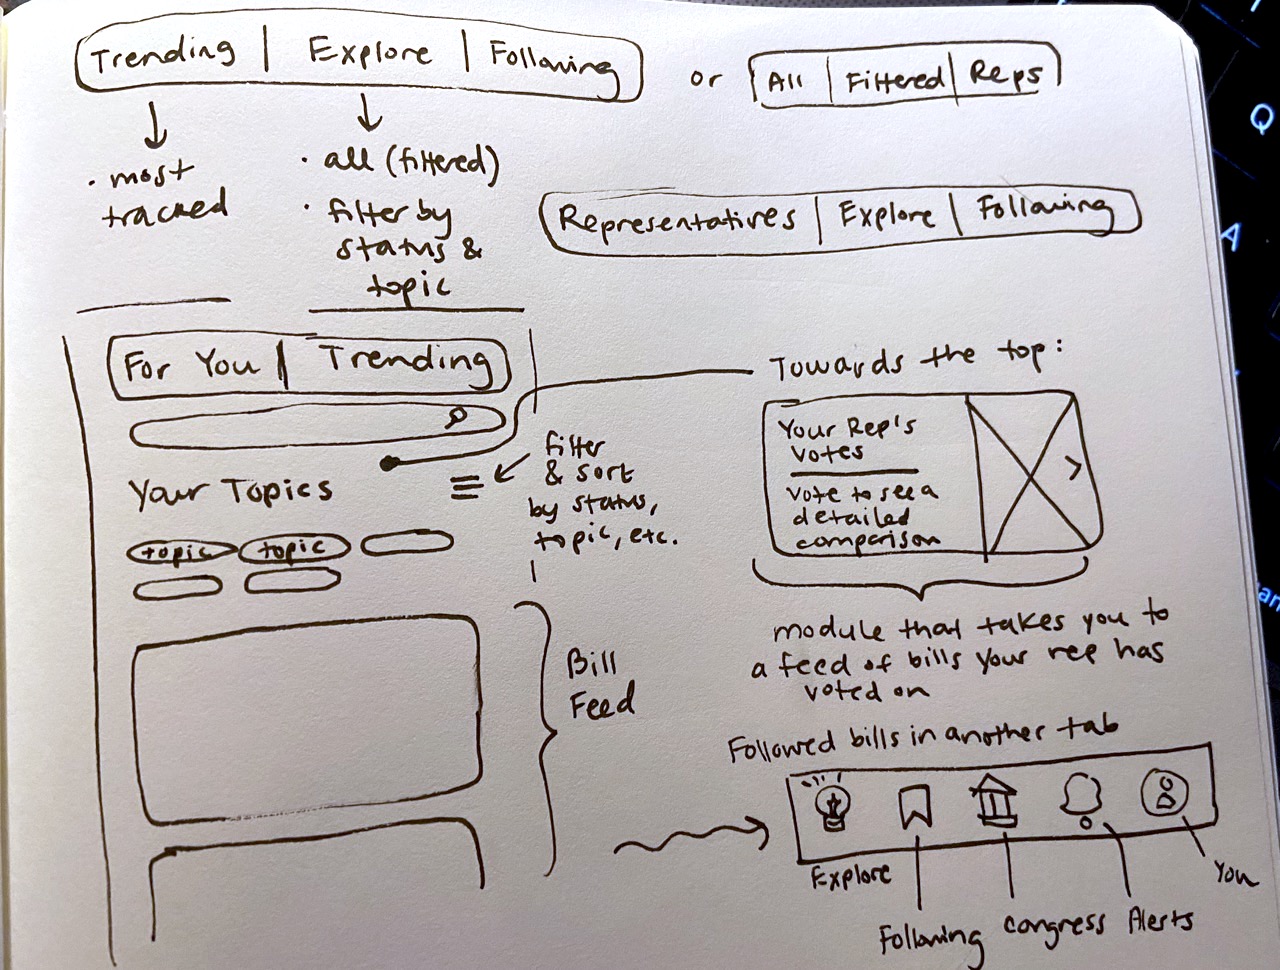 Trending | Explore | Following
or
All | Filtered | Reps
• most
tracked
• all (filtered)
• filter by
status &
topic
Representatives | Explore | Following
For You | Trending
Your Topics
topic
topic
filter
& sort
by status,
topic, etc.
Bill
Feed
Towards the top:
Your Rep's
votes
vote to see a
detailed
comparison
module that takes you to
a feed of bills your rep has
voted on
Followed bills in another tab
Explore
Following
Congress
Alerts
You
Q
A